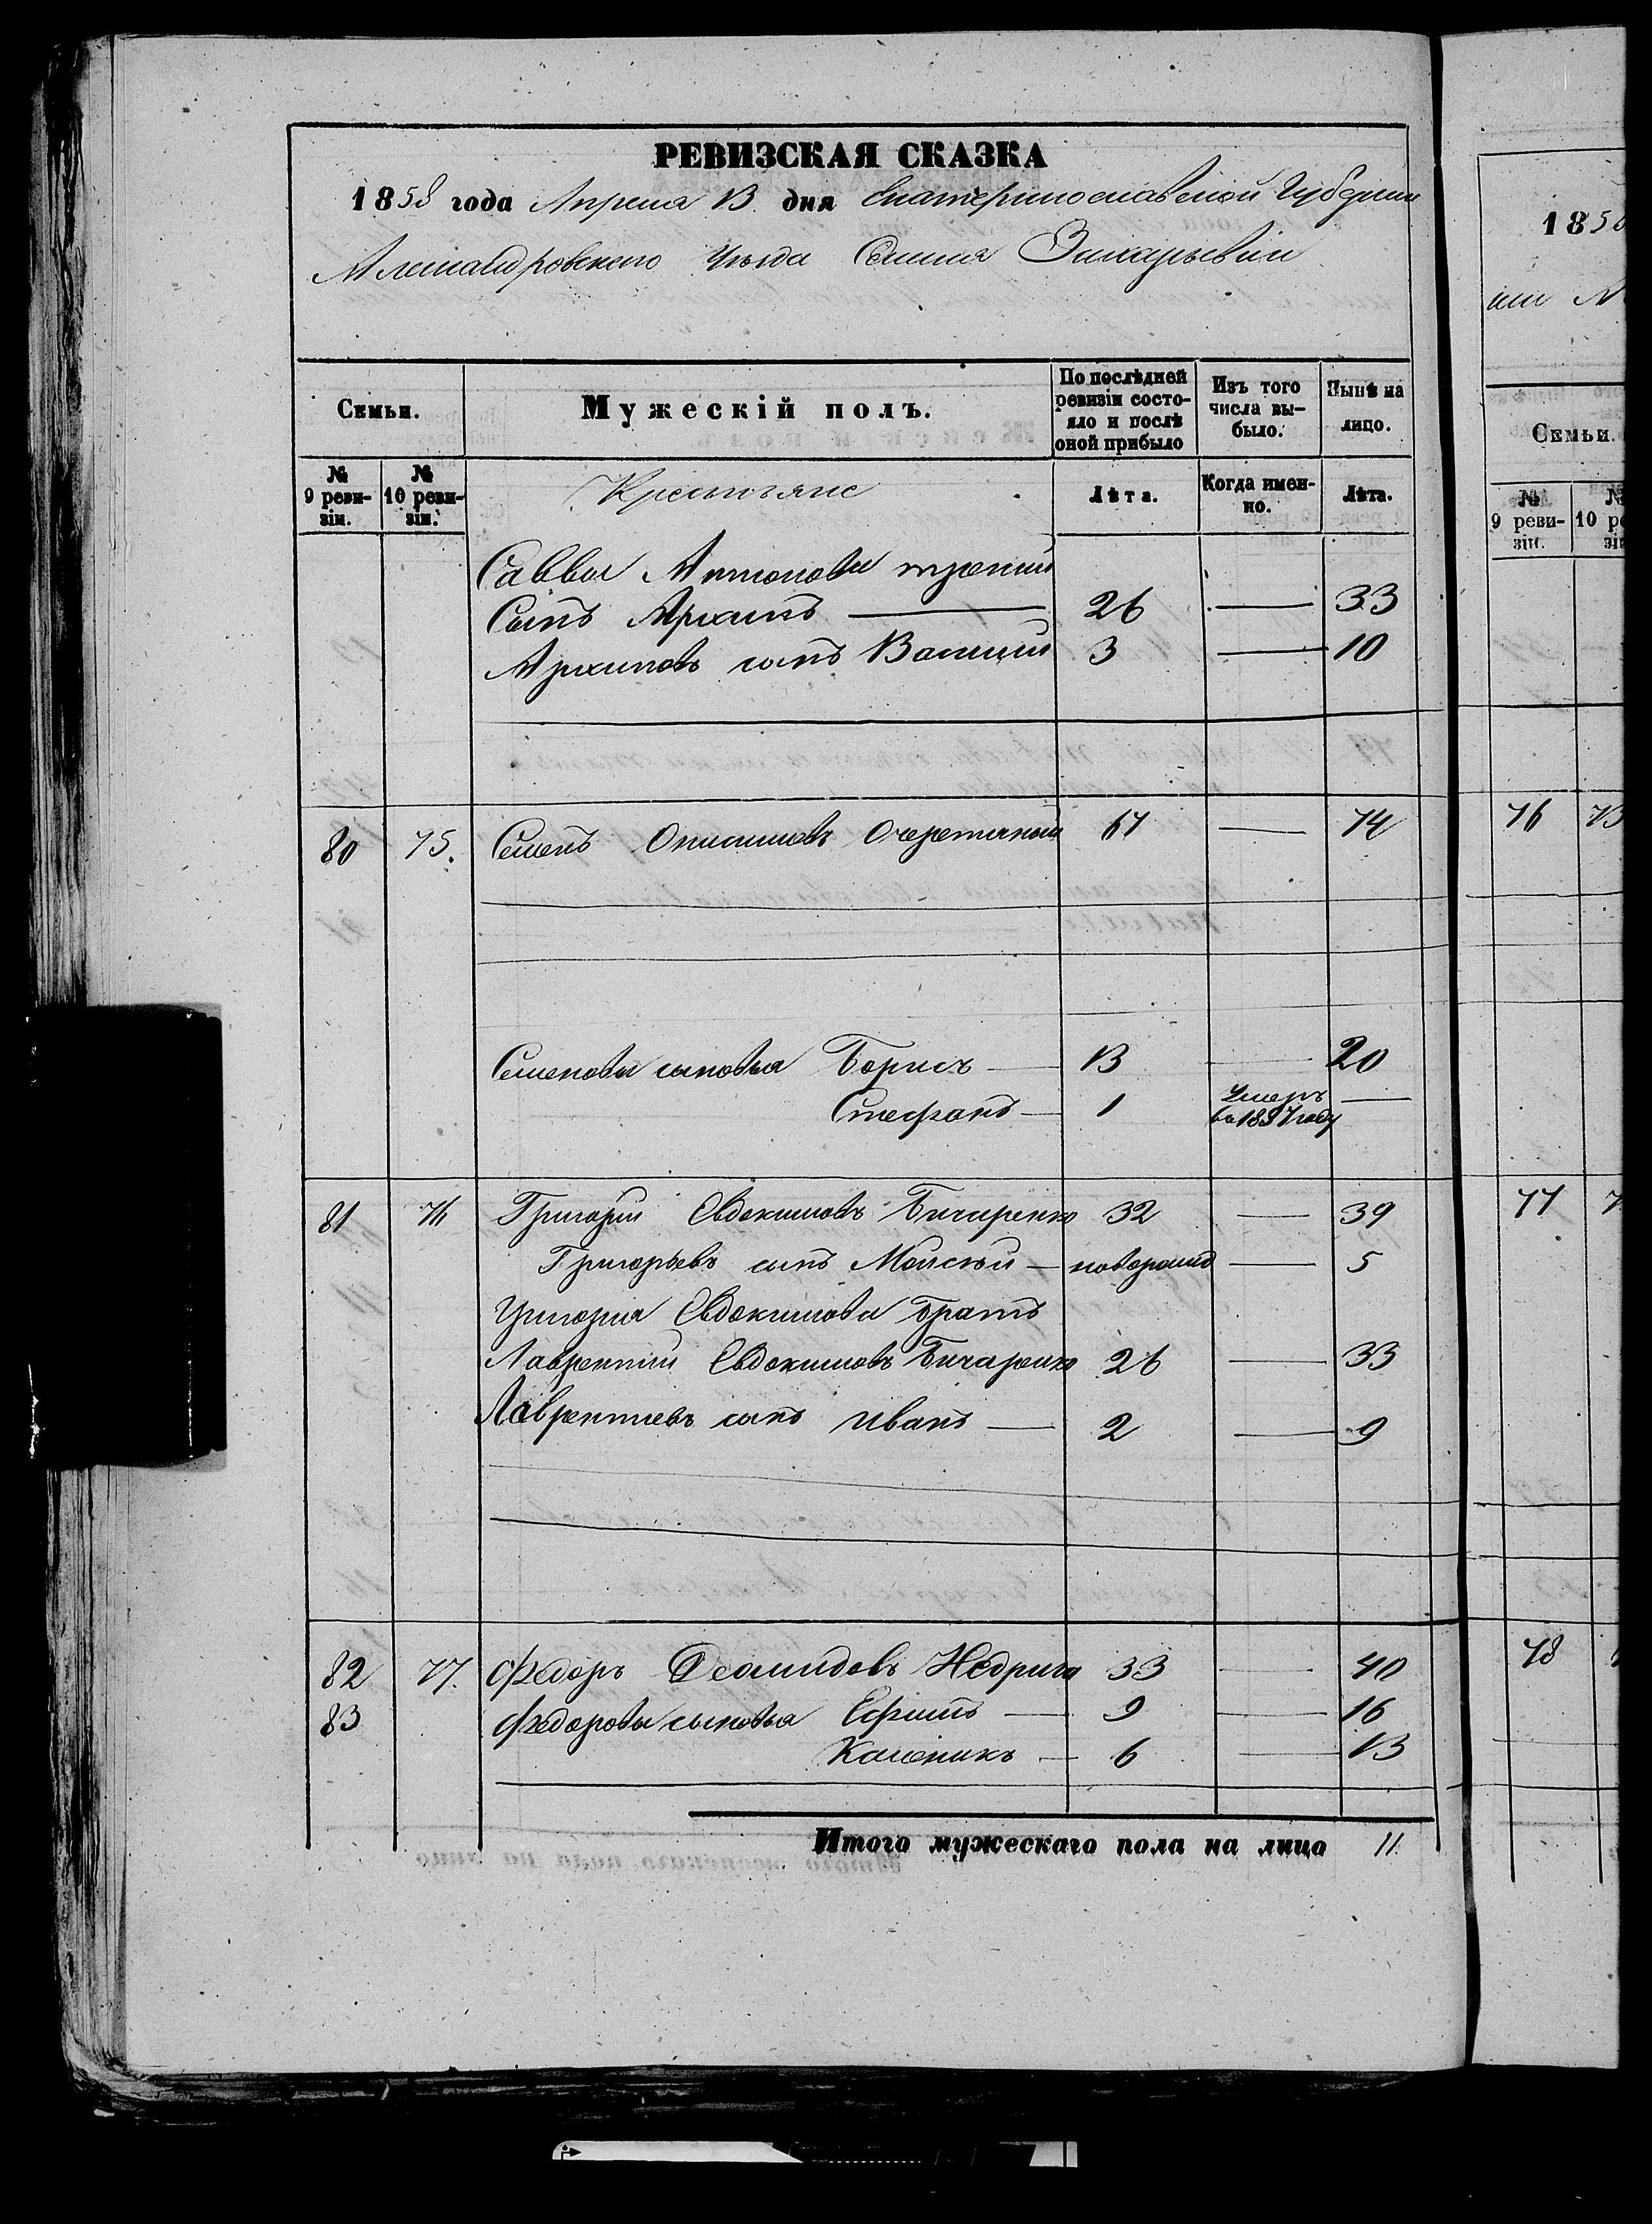 РЕВИЗСКАЯ СКАЗКА
1858 года Апреля 13 дня Екатеринославской Губернии
Александровского Уезда Селения Захарьевки
Семьи. Мужескій полъ. По послѣдней ревизіи состояло и послѣ оной прибыло Изъ того числа выбыло. Нынѣ на лицо.
№ 9 ревизіи. № 10 ревизіи. Крестьяне Лѣта. Когда именно. Лѣта.
Саввы Антонова третий
Сынъ Архипъ — 26 — 33
Архиповъ сынъ Василий 3 — 10
80 75. Семенъ Онисимовъ Очеретяный 67 — 74
Семеновы сыновья Борисъ — 13 — 20
Стефанъ — 1 Умеръ въ 1857 году —
81 76 Григорий Евдокимовъ Бичаренко 32 — 39
Григорьевъ сынъ Моисей — новорожд — 5
Григория Евдокимова братъ
Лаврентий Евдокимовъ Бичаренко 26 — 33
Лаврентиевъ сынъ Иванъ — 2 — 9
82 77. Федоръ Демидовъ Недрига 33 — 40
83 Федоровы сыновья Ефимъ — 9 — 16
Каленикъ — 6 — 13
Итого мужескаго пола на лицо 11.
185
Семьи.
№ 9 реви-зіи. № 10
76 73
77
78